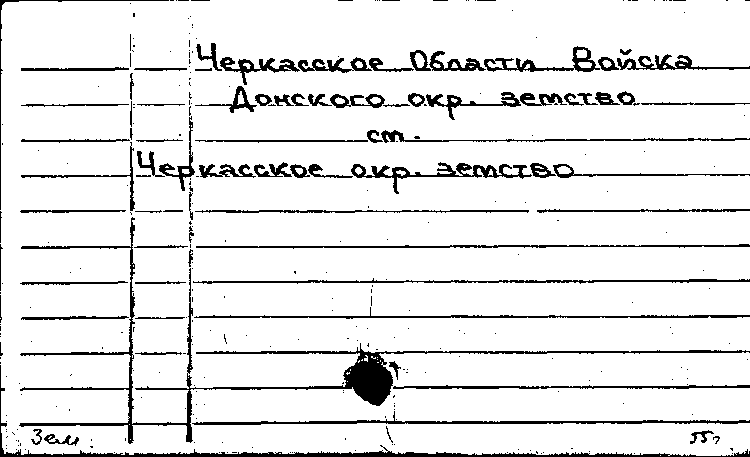 Черкасское Области Войска
Донского окр. земство
ст.
Черкасское окр. земство
Зем.